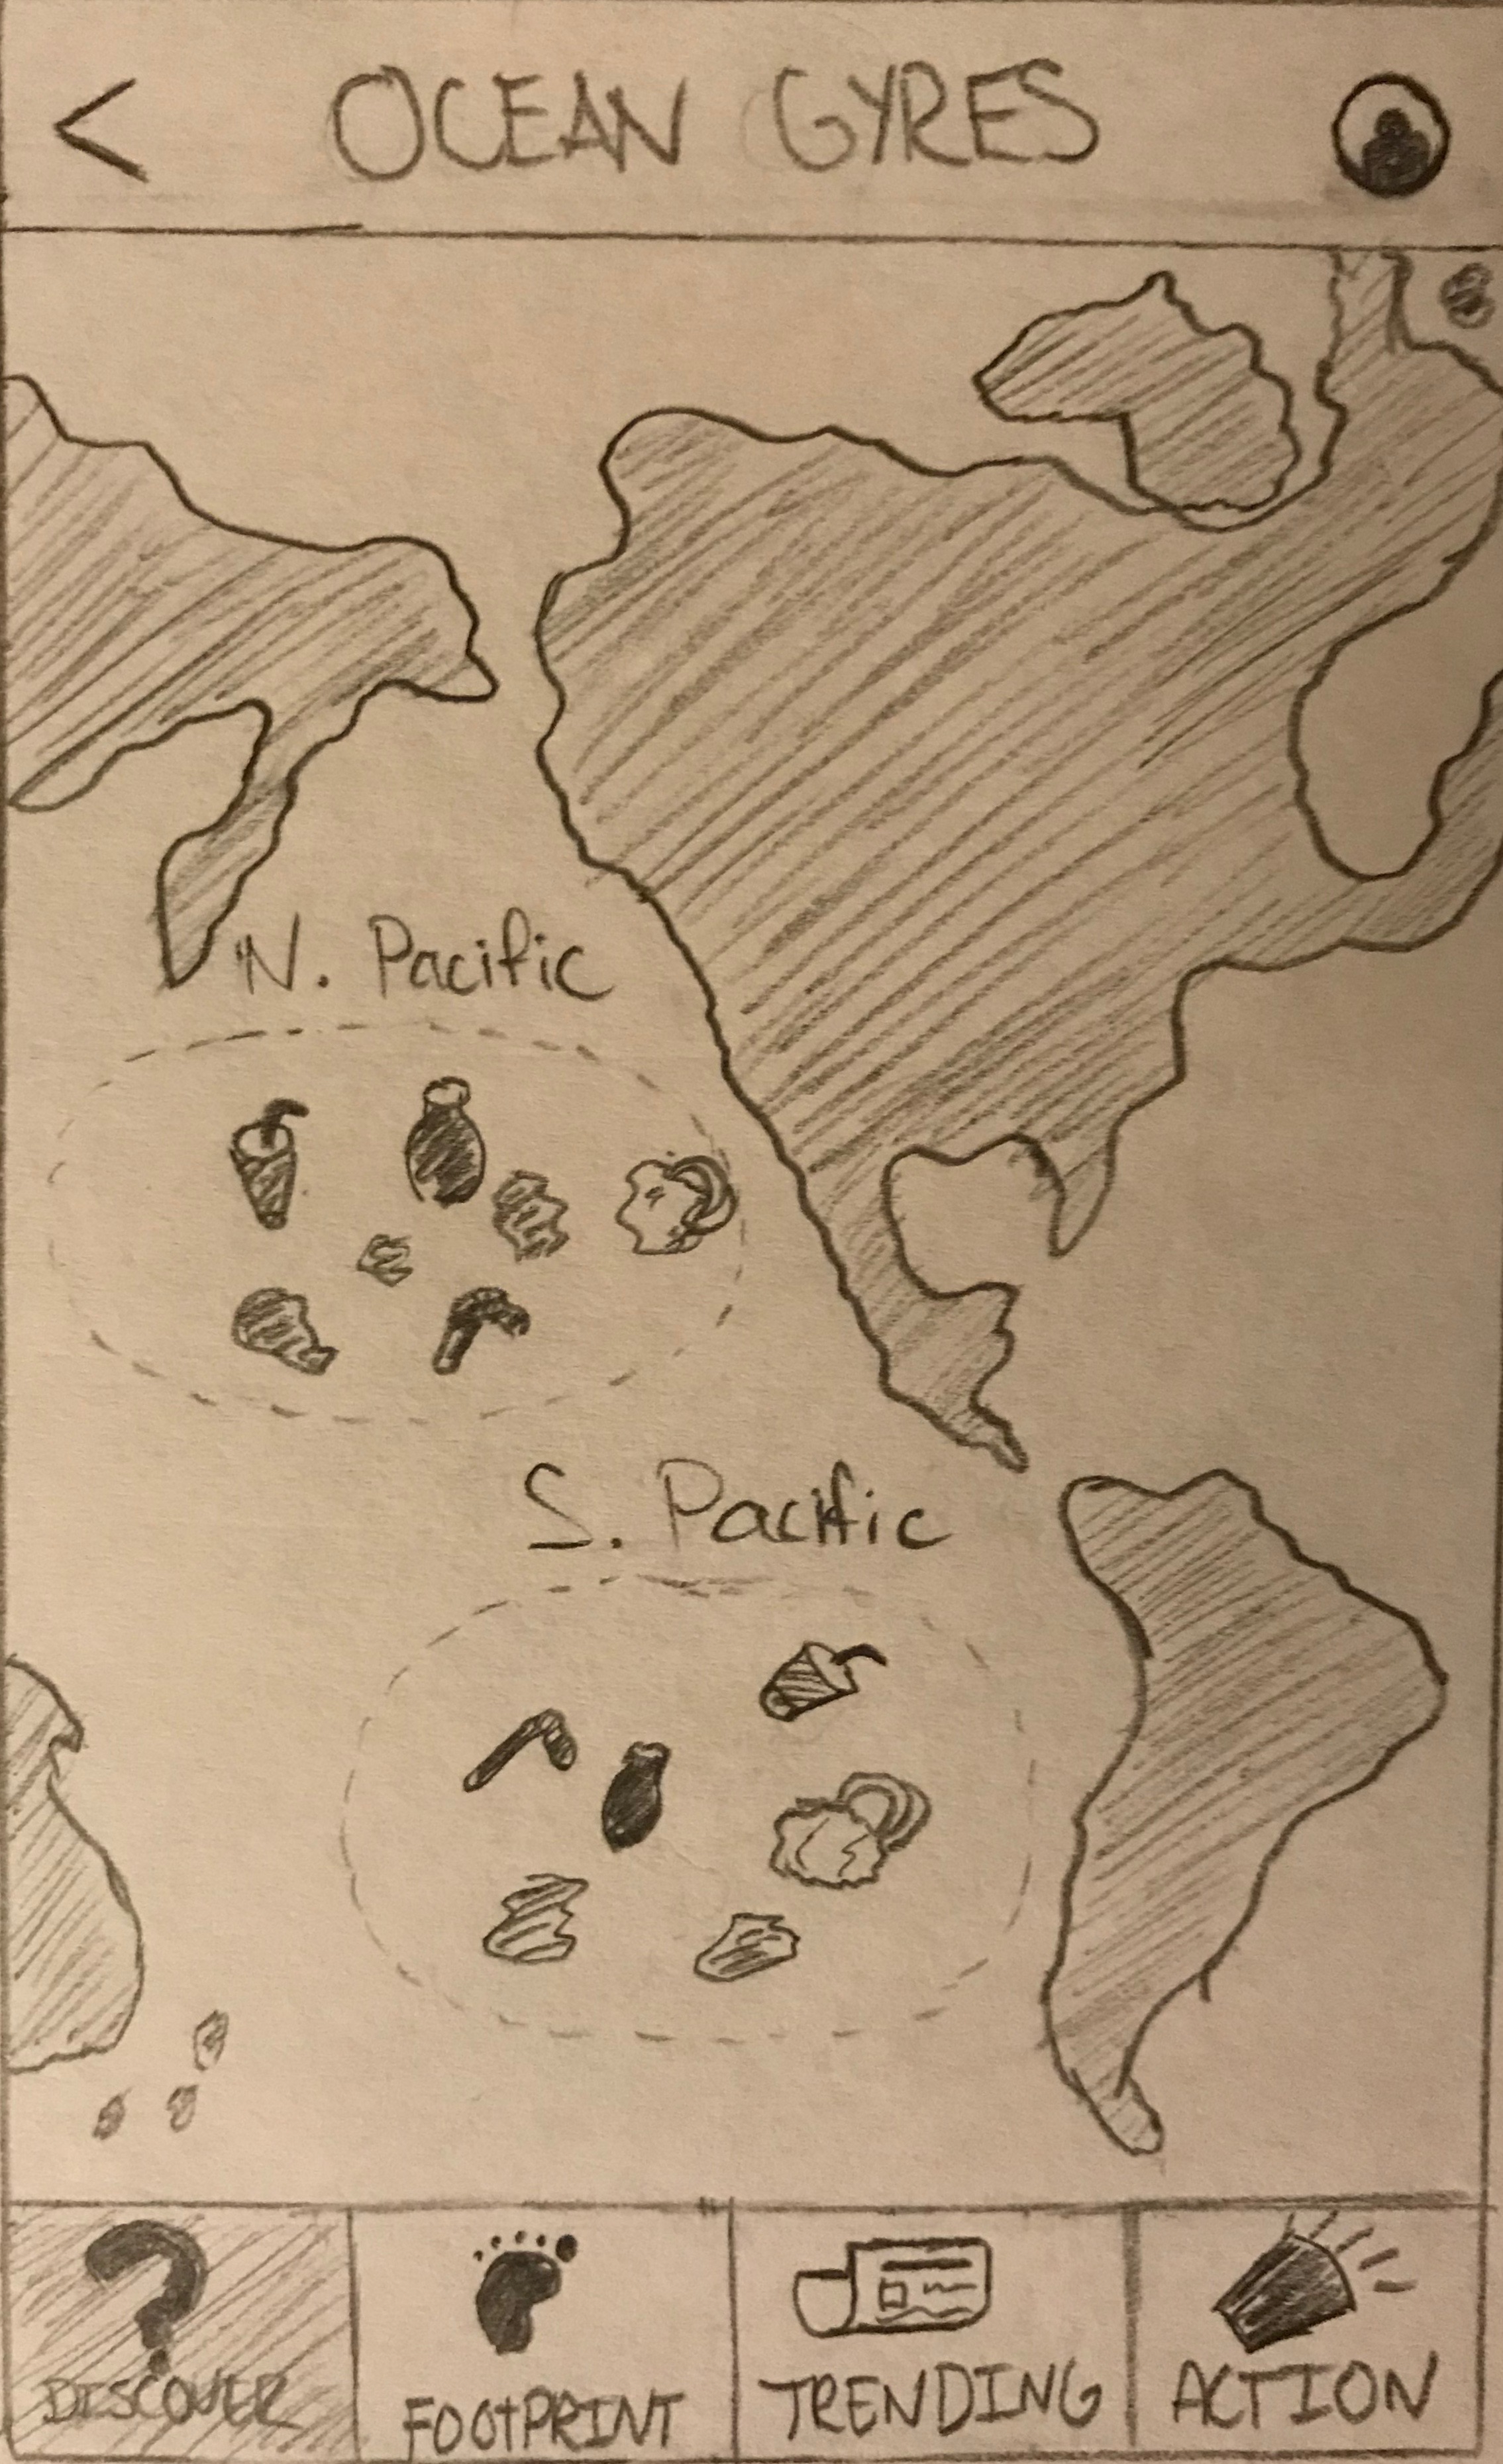 < OCEAN GYRES
N. Pacific
S. Pacific
DISCOVER
FOOtPRINT
TRENDING
ACTION